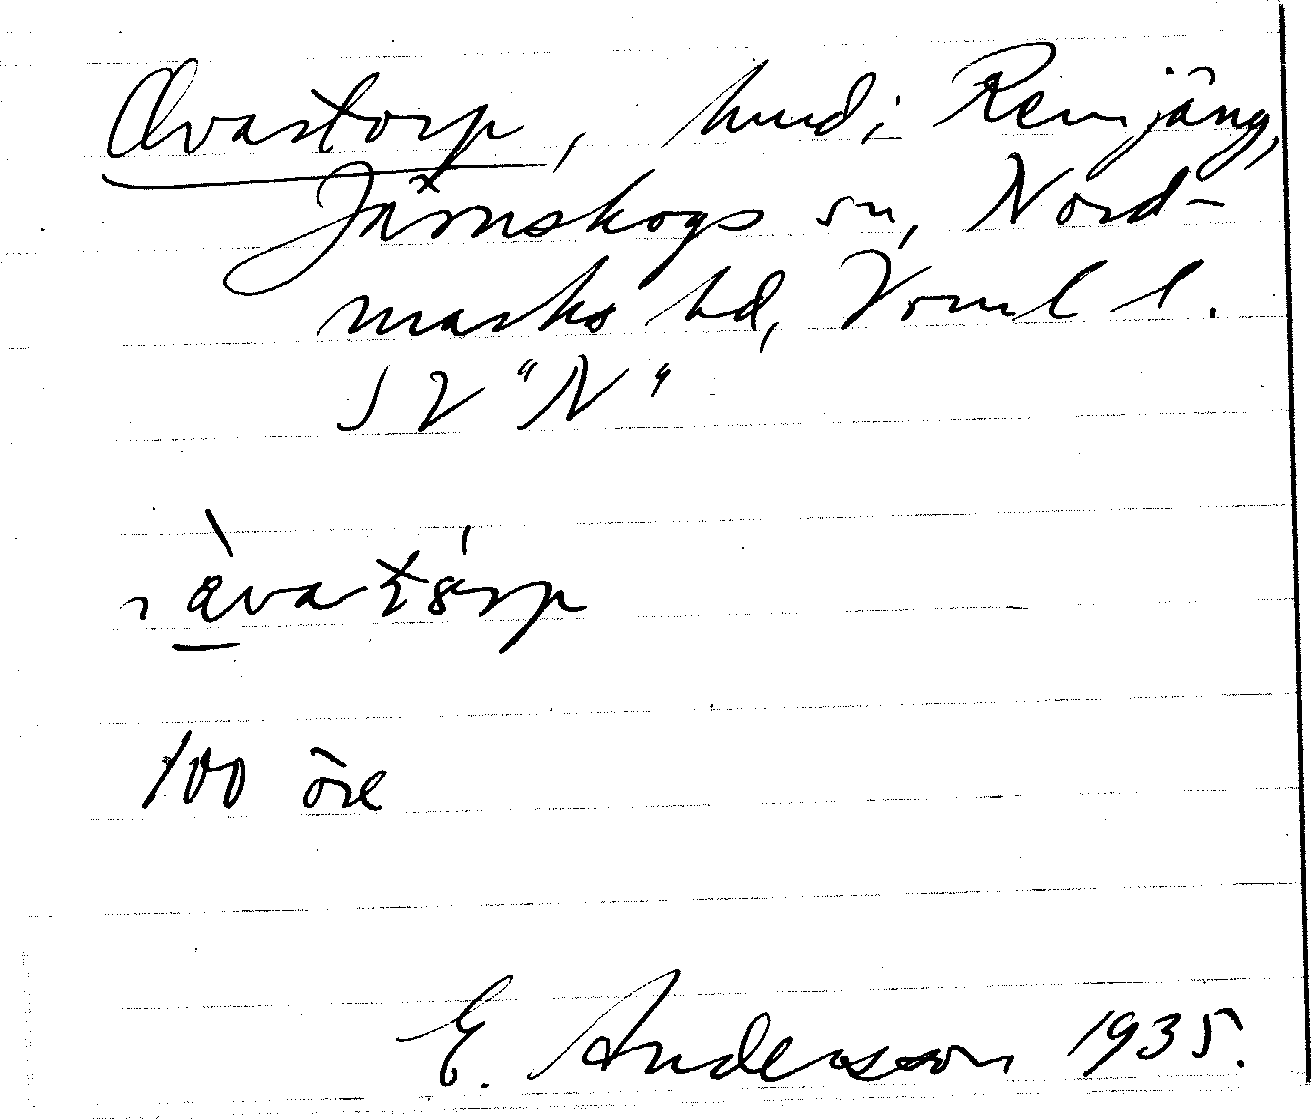 Ovastorp, hmd i Remjäng,
Järnskogs sn, Nord-
marks hd, Vrml l.
J V "N"
100 öre
E. Andersson 1935.